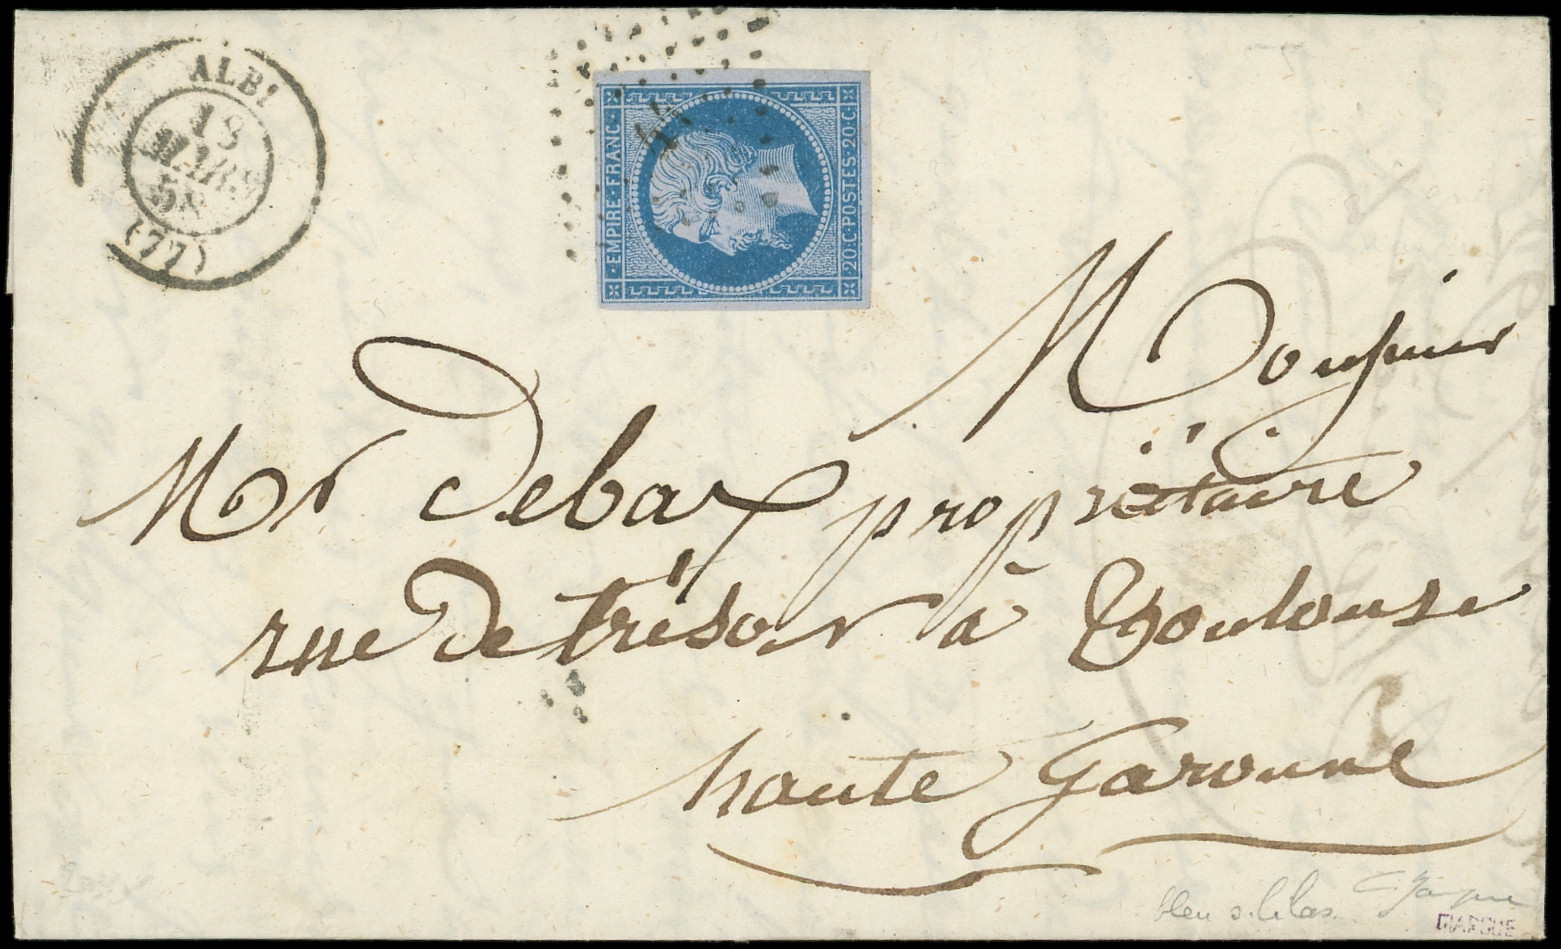 ALBI
18
MARS
58
(77)
44
EMPIRE · FRANC ·
20·C·POSTES·20·C·
Monsieur
Mr Debax propriétaire
rue de trésor à Toulouse
haute Garonne
bleu s. lilas